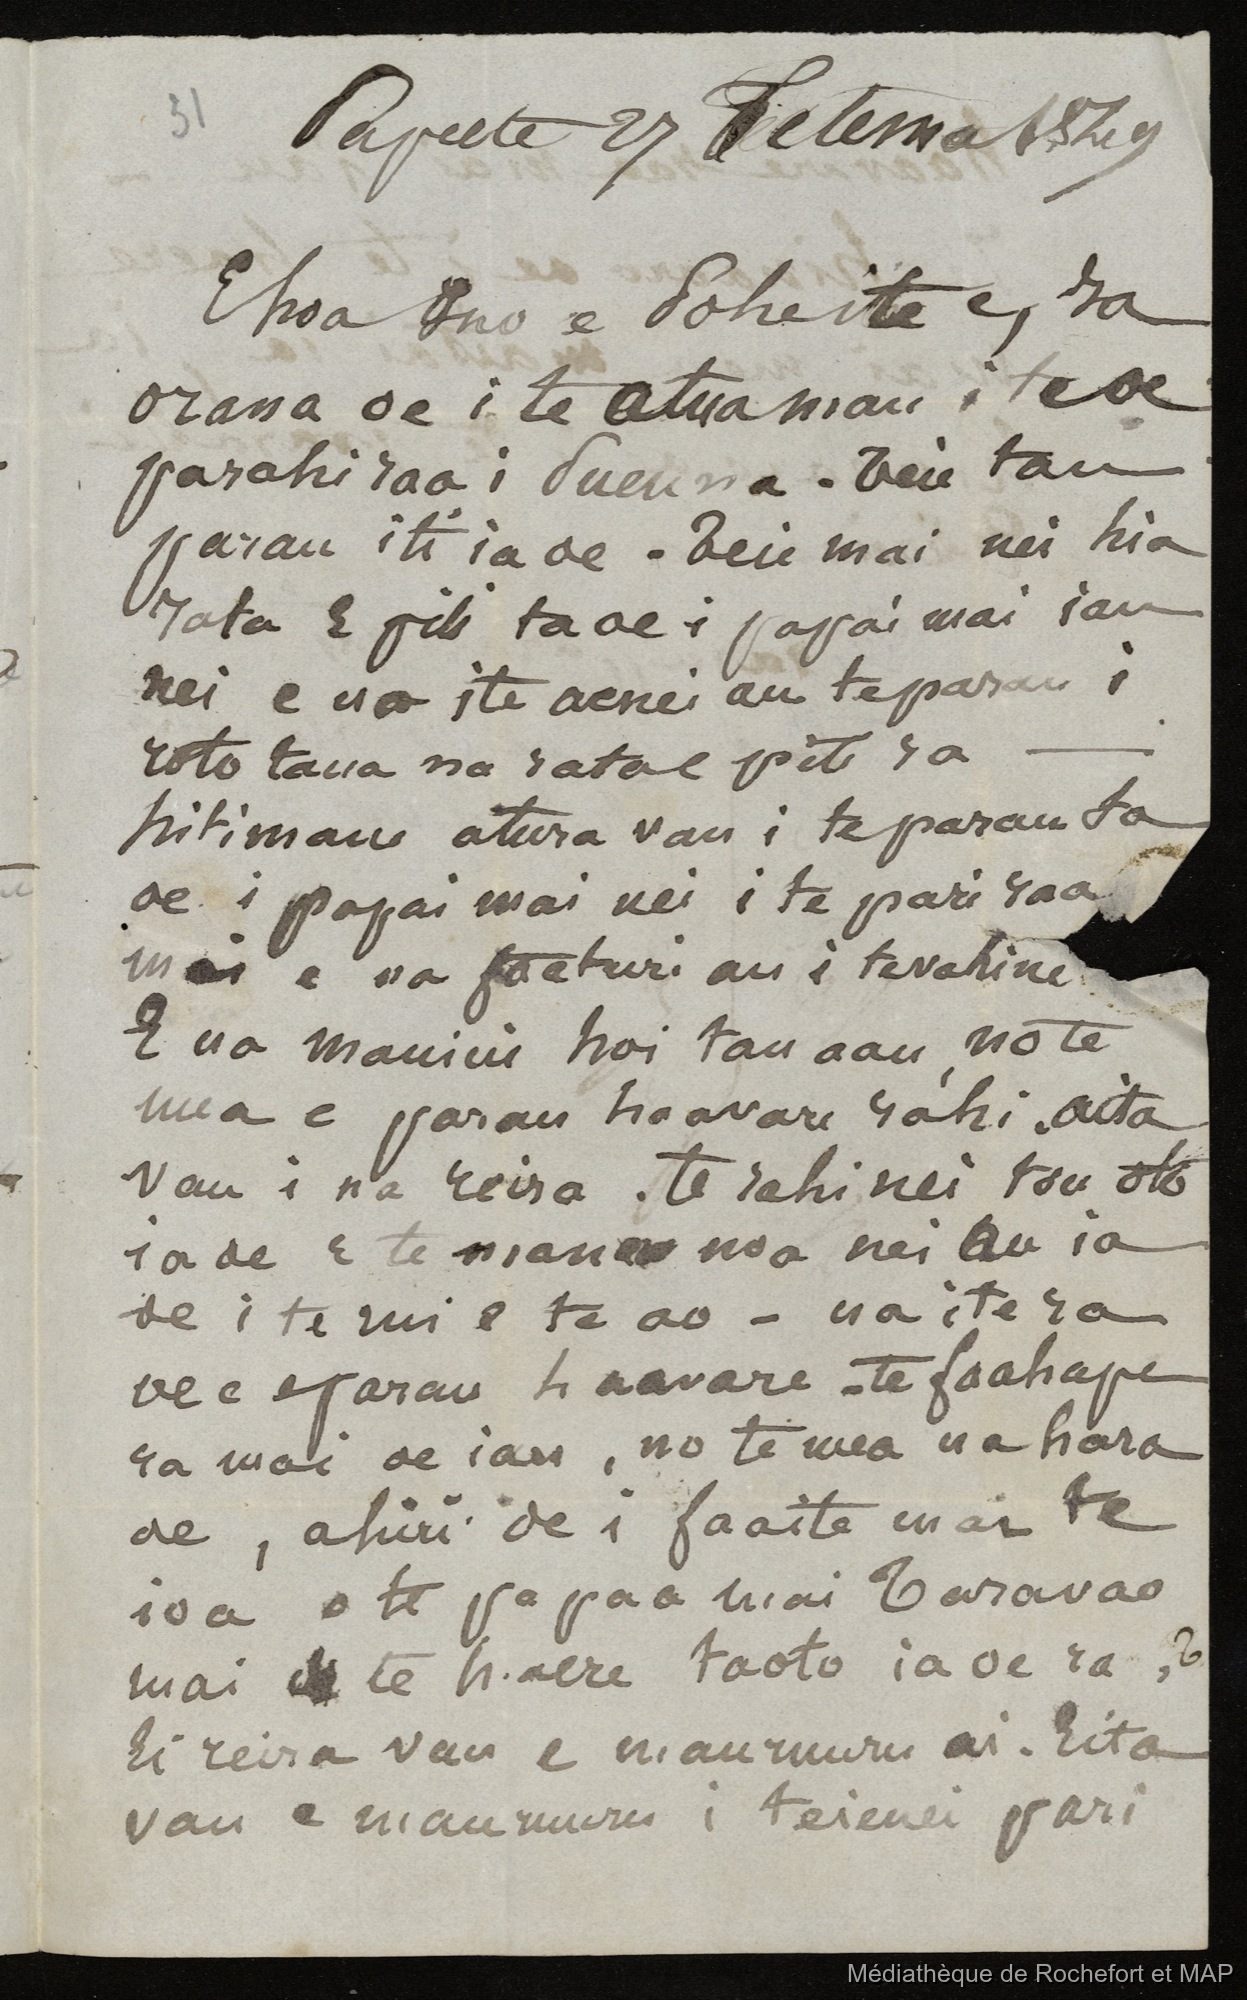 31
Papeete 27 Tetema 1879
E hoa Ino e Poheite e, Ia
orana oe i te Atua mau i te oe
parahi raa i Pueu na. Teie tau
parau iti ia oe. Teie mai nei hia
rata E piti ta oe i papai mai iau
nei e ua ite aenei au te parau i
roto taua na rata e piti ra —
hitimau atura vau i te parau ta
oe i papai mai nei i te pari raa
mai e ua faaturi au i te vahine
E ua mauiui hoi tau aau, no te
mea e parau haavare rahi. aita
vau i na reira. Te rahi nei tou oto
ia oe E te manao noa nei au ia
oe i te rui e te ao - ua ite ra
oe e e parau haavare. te faahape
ra mai oe iau, no te mea ua hara
oe, ahiri oe i faaite mai te
ioa o te papaa mai Taravao
mai te haere taoto ia oe ra,
Ei reira vau e mauruuru ai. Eita
vau e mauruuru i teienei pari
Médiathèque de Rochefort et MAP